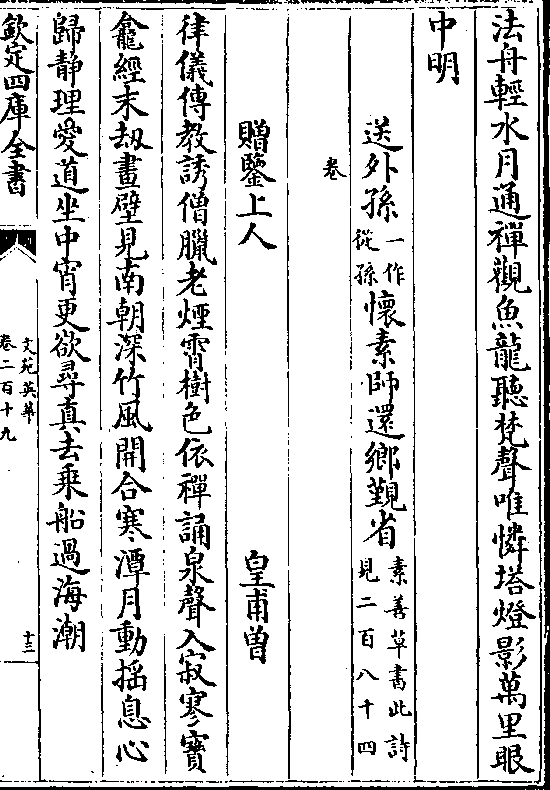 法舟輕水月通禪觀魚龍聽梵聲唯憐塔燈影萬里眼
中明
送外孫一作從孫懷素師還鄉覲省素善草書此詩見二百八十四
卷
贈鑒上人 皇甫曾
律儀傳教誘僧臘老煙霄樹色依禪誦泉聲入寂寥寶
龕經末刼畫壁見南朝深竹風開合寒潭月動揺息心
歸静理愛道坐中宵更欲尋真去乗船過海潮
欽定四庫全書
文苑英華
卷二百十九
十三